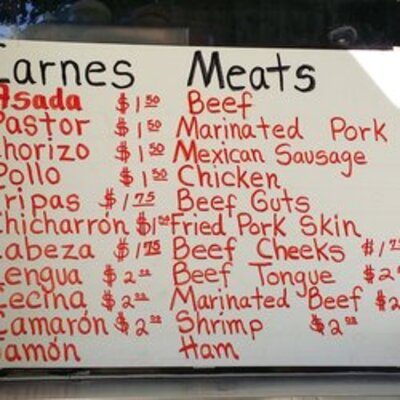 Carnes Meats
Asada $1 50 Beef
Pastor $1 50 Marinated Pork
Chorizo $1 50 Mexican Sausage
Pollo $1 50 Chicken
Tripas $1 75 Beef Guts
Chicharrón $1 50 Fried Pork Skin
Cabeza $1 75 Beef Cheeks $1 75
Lengua $2 00 Beef Tongue $2
Cecina $2 00 Marinated Beef $2
Camarón $2 00 Shrimp $2 00
Jamón Ham